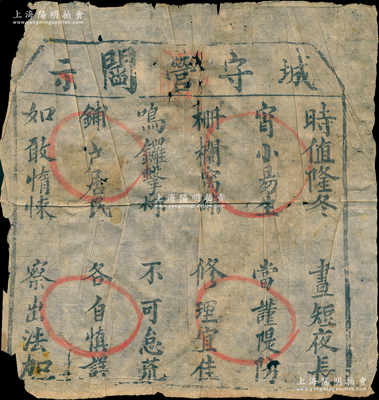 上海陽明拍賣
城守營 示
時值隆冬 晝短夜長
宵小易生 當謹隄防
柵欄窩鋪 修理宜佳
鳴鑼擊柝 不可怠荒
鋪户居民 各自慎謹
如敢惰悚 察出法加
上海陽明拍賣